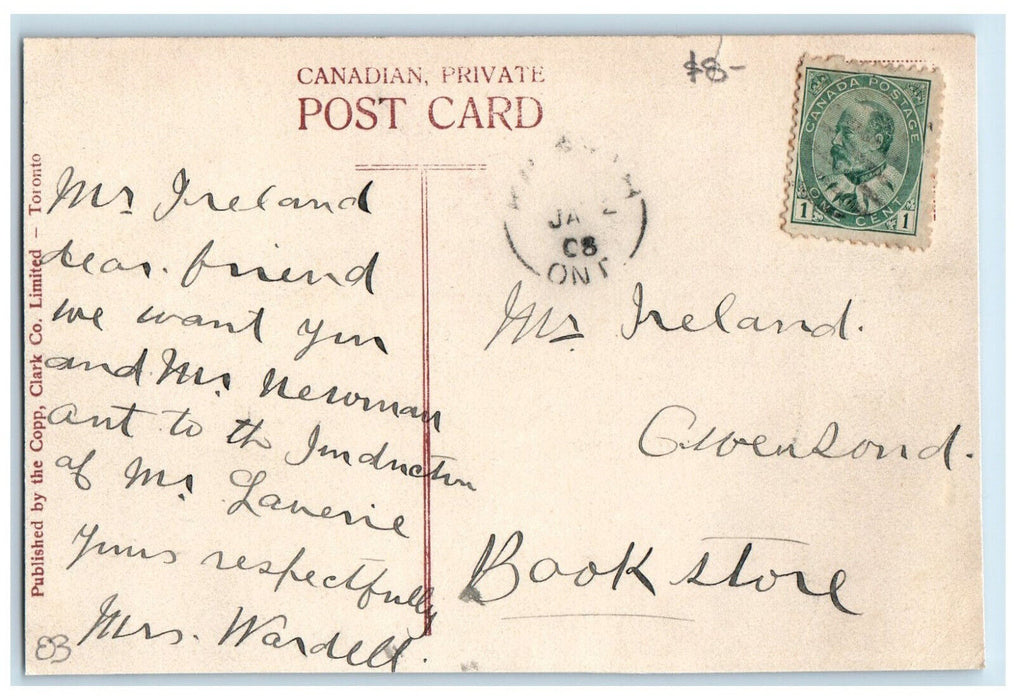 CANADIAN, PRIVATE
POST CARD
$8-
CANADA POSTAGE
1 ONE CENT 1
JA 2
08
ONT
Published by the Copp, Clark Co. Limited – Toronto
Mr Ireland
dear. friend
we want you
and Mr Newman
out to th Induction
of Mr. Laverie
yours respectfully
Mrs. Wardell.
Mr. Ireland.
Owensond.
Book store
EB